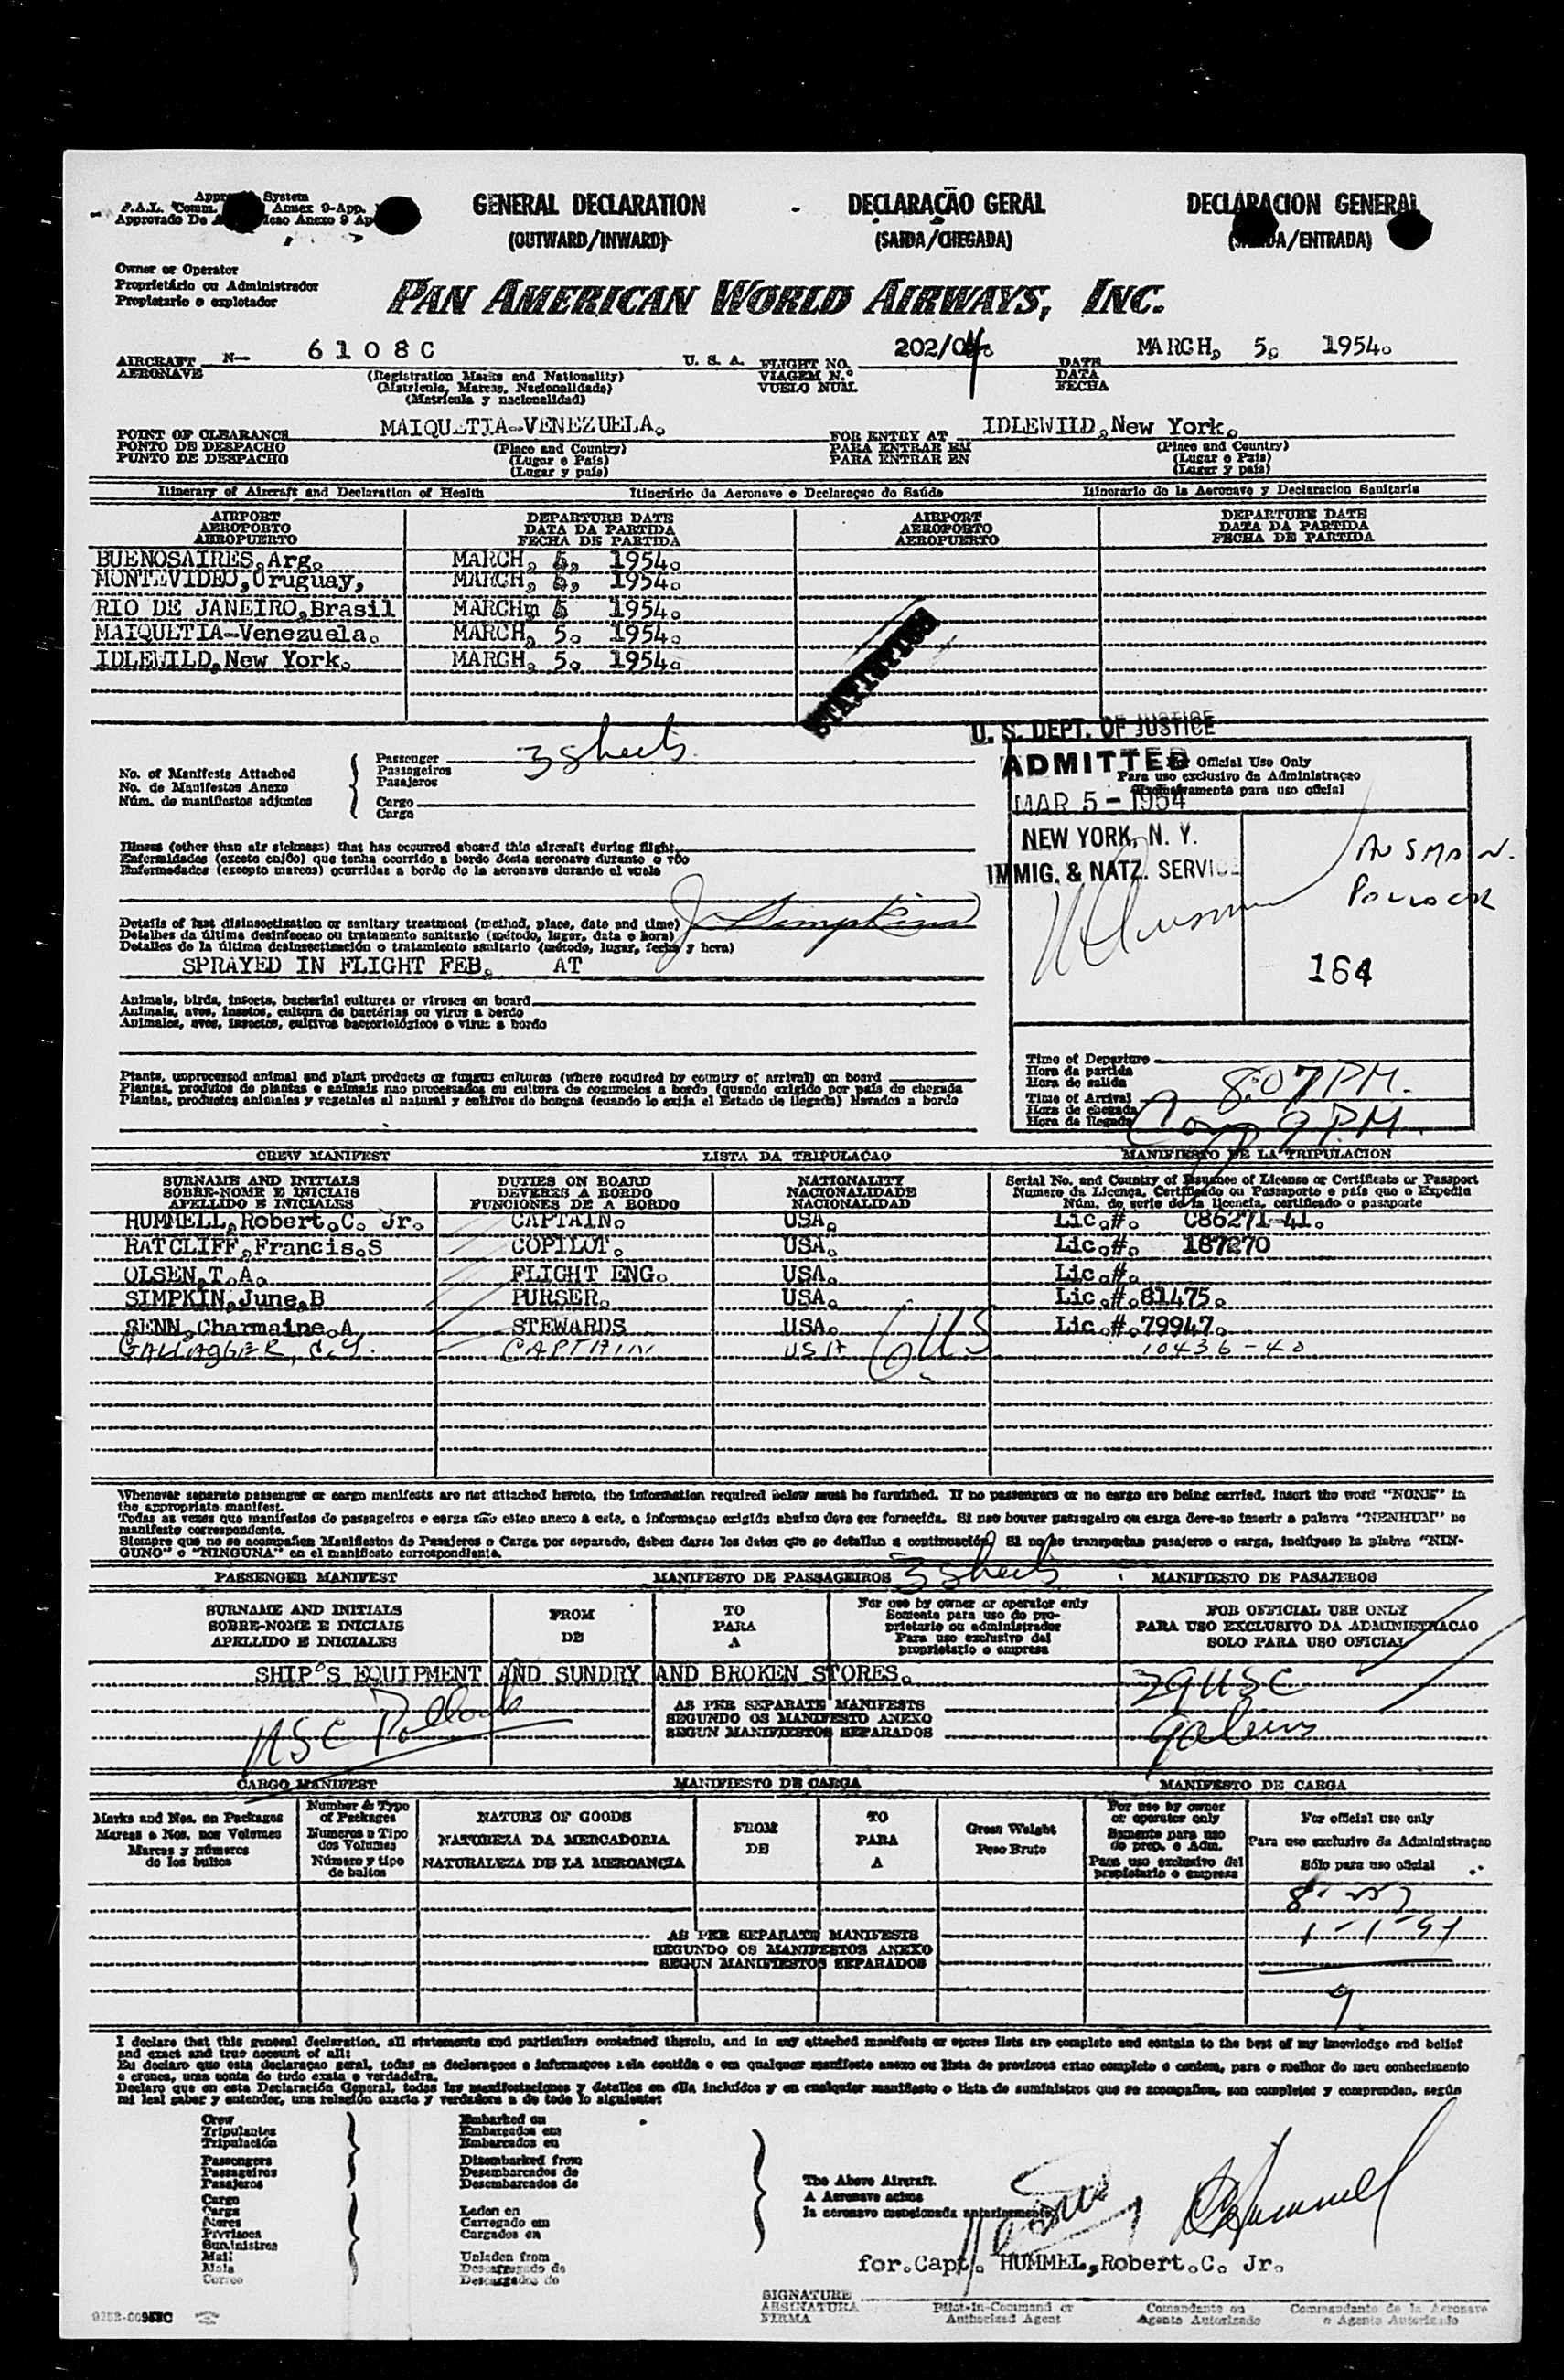 GENERAL DECLARATION - DECLARAÇÃO GERAL DECLARACION GENERAL
(OUTWARD/INWARD) (SAIDA/CHEGADA) /ENTRADA)
Owner or Operator
Proprietário ou Administrador
Propietario o explotador
PAN AMERICAN WORLD AIRWAYS, INC.
AIRCRAFT N— 6108C U. S. A. FLIGHT NO. 202/04 DATE MARCH, 5, 1954.
AERONAVE (Registration Marks and Nationality) VIAGEM N.º DATA
(Matricula, Marcas, Nacionalidade) VUELO NUM. FECHA
(Matrícula y nacionalidad)
POINT OF CLEARANCE MAIQUETIA-VENEZUELA. FOR ENTRY AT IDLEWILD, New York.
PONTO DE DESPACHO (Place and Country) PARA ENTRAR EM (Place and Country)
PUNTO DE DESPACHO (Lugar e Pais) PARA ENTRAR EN (Lugar e Pais)
(Lugar y país) (Lugar y país)
Itinerary of Aircraft and Declaration of Health Itinerário da Aeronave e Declaraçao de Saúde Itinerario de la Aeronave y Declaracion Sanitaria
AIRPORT DEPARTURE DATE AIRPORT DEPARTURE DATE
AEROPORTO DATA DA PARTIDA AEROPORTO DATA DA PARTIDA
AEROPUERTO FECHA DE PARTIDA AEROPUERTO FECHA DE PARTIDA
BUENOSAIRES, Arg. MARCH, 5, 1954.
MONTEVIDEO, Uruguay, MARCH, 5, 1954.
RIO DE JANEIRO, Brasil MARCHm 5 1954.
MAIQUETIA-Venezuela. MARCH, 5. 1954.
IDLEWILD, New York. MARCH, 5. 1954.
STATISTICS
U. S. DEPT. OF JUSTICE
ADMITTED Official Use Only
Para uso exclusivo da Administraçao
MAR 5 - 1954
NEW YORK, N. Y.
IMMIG. & NATZ. SERVICE
No. of Manifests Attached Passenger 3 sheets
No. de Manifestos Anexo Passageiros
Núm. de manifiestos adjuntos Pasajeros
Cargo
Carga
Illness (other than air sickness) that has occurred aboard this aircraft during flight
Enfermidades (exceto enjôo) que tenha ocorrido a bordo desta aeronave durante o vôo
Enfermedades (excepto mareos) ocurridas a bordo de la aeronave durante el vuelo
Details of last disinsectization or sanitary treatment (method, place, date and time) J Simpkin
Detalhes da última desinfecçao ou tratamento sanitario (método, lugar, data e hora)
Detalles de la última desinsectización o tratamiento sanitario (método, lugar, fecha y hora)
SPRAYED IN FLIGHT FEB. AT
164
Animals, birds, insects, bacterial cultures or viruses on board
Animais, aves, insetos, cultura de bactérias ou virus a bordo
Animales, aves, insectos, cultivos bacteriológicos o virus a bordo
Plants, unprocessed animal and plant products or fungus cultures (where required by country of arrival) on board
Plantas, produtos de plantas e animais nao processados ou cultura de cogumelos a bordo (quando exigido por pais de chegada
Plantas, productos animales y vegetales al natural y cultivos de hongos (cuando lo exija el Estado de llegada) llevados a bordo
Time of Departure
Hora da partida
Hora de salida 8:07 PM.
Time of Arrival
Hora de chegada
Hora de llegada 9 PM.
CREW MANIFEST LISTA DA TRIPULACAO MANIFIESTO DE LA TRIPULACION
SURNAME AND INITIALS DUTIES ON BOARD NATIONALITY Serial No. and Country of Issuance of License or Certificate or Passport
SOBRE-NOME E INICIAIS DEVERES A BORDO NACIONALIDADE Numero da Licença, Certificado ou Passaporte e país que o Expedia
APELLIDO E INICIALES FUNCIONES DE A BORDO NACIONALIDAD Núm. de serie de la licencia, certificado o pasaporte
HUMMELL, Robert.C. Jr. CAPTAIN. USA. Lic.#. C86271-41.
RATCLIFF, Francis.S COPILOT. USA. Lic.#. 187270
OLSEN, T.A. FLIGHT ENG. USA. Lic.#.
SIMPKIN, June, B PURSER. USA. Lic.#.81475.
SENN, Charmaine.A STEWARDS USA. Lic.#.79947.
GALLAGHER, C.Y. CAPTAIN USA 10436-40
6 US
Whenever separate passenger or cargo manifests are not attached hereto, the information required below must be furnished. If no passengers or no cargo are being carried, insert the word "NONE" in
the appropriate manifest.
Todas as vezes que manifestos de passageiros e carga não estao anexo a este, a informaçao exigida abaixo deve ser fornecida. Si nao houver passageiro ou carga deve-se inserir a palavra "NENHUM" no
manifesto correspondente.
Siempre que no se acompañen Manifiestos de Pasajeros o Carga por separado, deben darse los datos que se detallan a continuación. Si no se transportan pasajeros o carga, inclúyase la plabra "NIN-
GUNO" o "NINGUNA" en el manifiesto correspondiente.
PASSENGER MANIFEST MANIFESTO DE PASSAGEIROS 3 sheets MANIFIESTO DE PASAJEROS
SURNAME AND INITIALS FROM TO For use by owner or operator only FOR OFFICIAL USE ONLY
SOBRE-NOME E INICIAIS DE PARA Somente para uso do proprietario ou administrador PARA USO EXCLUSIVO DA ADMINISTRACAO
APELLIDO E INICIALES A Para uso exclusivo del proprietario o empresa SOLO PARA USO OFICIAL
SHIP'S EQUIPMENT AND SUNDRY AND BROKEN STORES.
29 USC
AS PER SEPARATE MANIFESTS
SEGUNDO OS MANIFESTO ANEXO
SEGUN MANIFIESTOS SEPARADOS
USC Pollock
CARGO MANIFEST MANIFIESTO DE CARGA MANIFESTO DE CARGA
Marks and Nos. on Packages Number & Type of Packages NATURE OF GOODS FROM TO Gross Weight For use by owner or operator only For official use only
Marcas e Nos. nos Volumes Numeros e Tipo dos Volumes NATUREZA DA MERCADORIA DE PARA Peso Bruto Somente para uso do prop. e Adm. Para uso exclusivo da Administraçao
Marcas y números de los bultos Número y tipo de bultos NATURALEZA DE LA MERCANCIA A Para uso exclusivo del propietario o empresa Sólo para uso oficial
AS PER SEPARATE MANIFESTS
SEGUNDO OS MANIFESTOS ANEXO
SEGUN MANIFIESTOS SEPARADOS
9
I declare that this general declaration, all statements and particulars contained therein, and in any attached manifests or stores lists are complete and contain to the best of my knowledge and belief
and exact and true account of all:
Eu declaro que esta declaraçao geral, todas as declaraçoes e informaçoes nela contida e em qualquer manifesto anexo ou lista de provisoes estao completo e contem, para o melhor do meu conhecimento
e crença, uma conta de tudo exata e verdadeira.
Declaro que en esta Declaración General, todas las manifestaciones y detalles en ella incluidos y en cualquier manifiesto o lista de suministros que se acompañen, son completas y comprenden, según
mi leal saber y entender, una relación exacta y verdadera a de todo lo siguiente:
Crew Embarked on
Tripulantes Embarcados em
Tripulación Embarcados en
Passengers Disembarked from
Passageiros Desembarcados de
Pasajeros Desembarcados de
Cargo
Carga Laden on
Stores Carregado em
Provisoes Cargados en
Suministros
Mail Unladen from
Mala Descarregado de
Correo Descargados de
The Above Aircraft.
A Aeronave acima
la aeronave mencionada anteriormente
for.Capt. HUMMEL, Robert.C. Jr.
SIGNATURE
ASSINATURA Pilot-in-Command or Comandante ou Comandante de la Aeronave
FIRMA Authorized Agent Agente Autorizado o Agente Autorizado